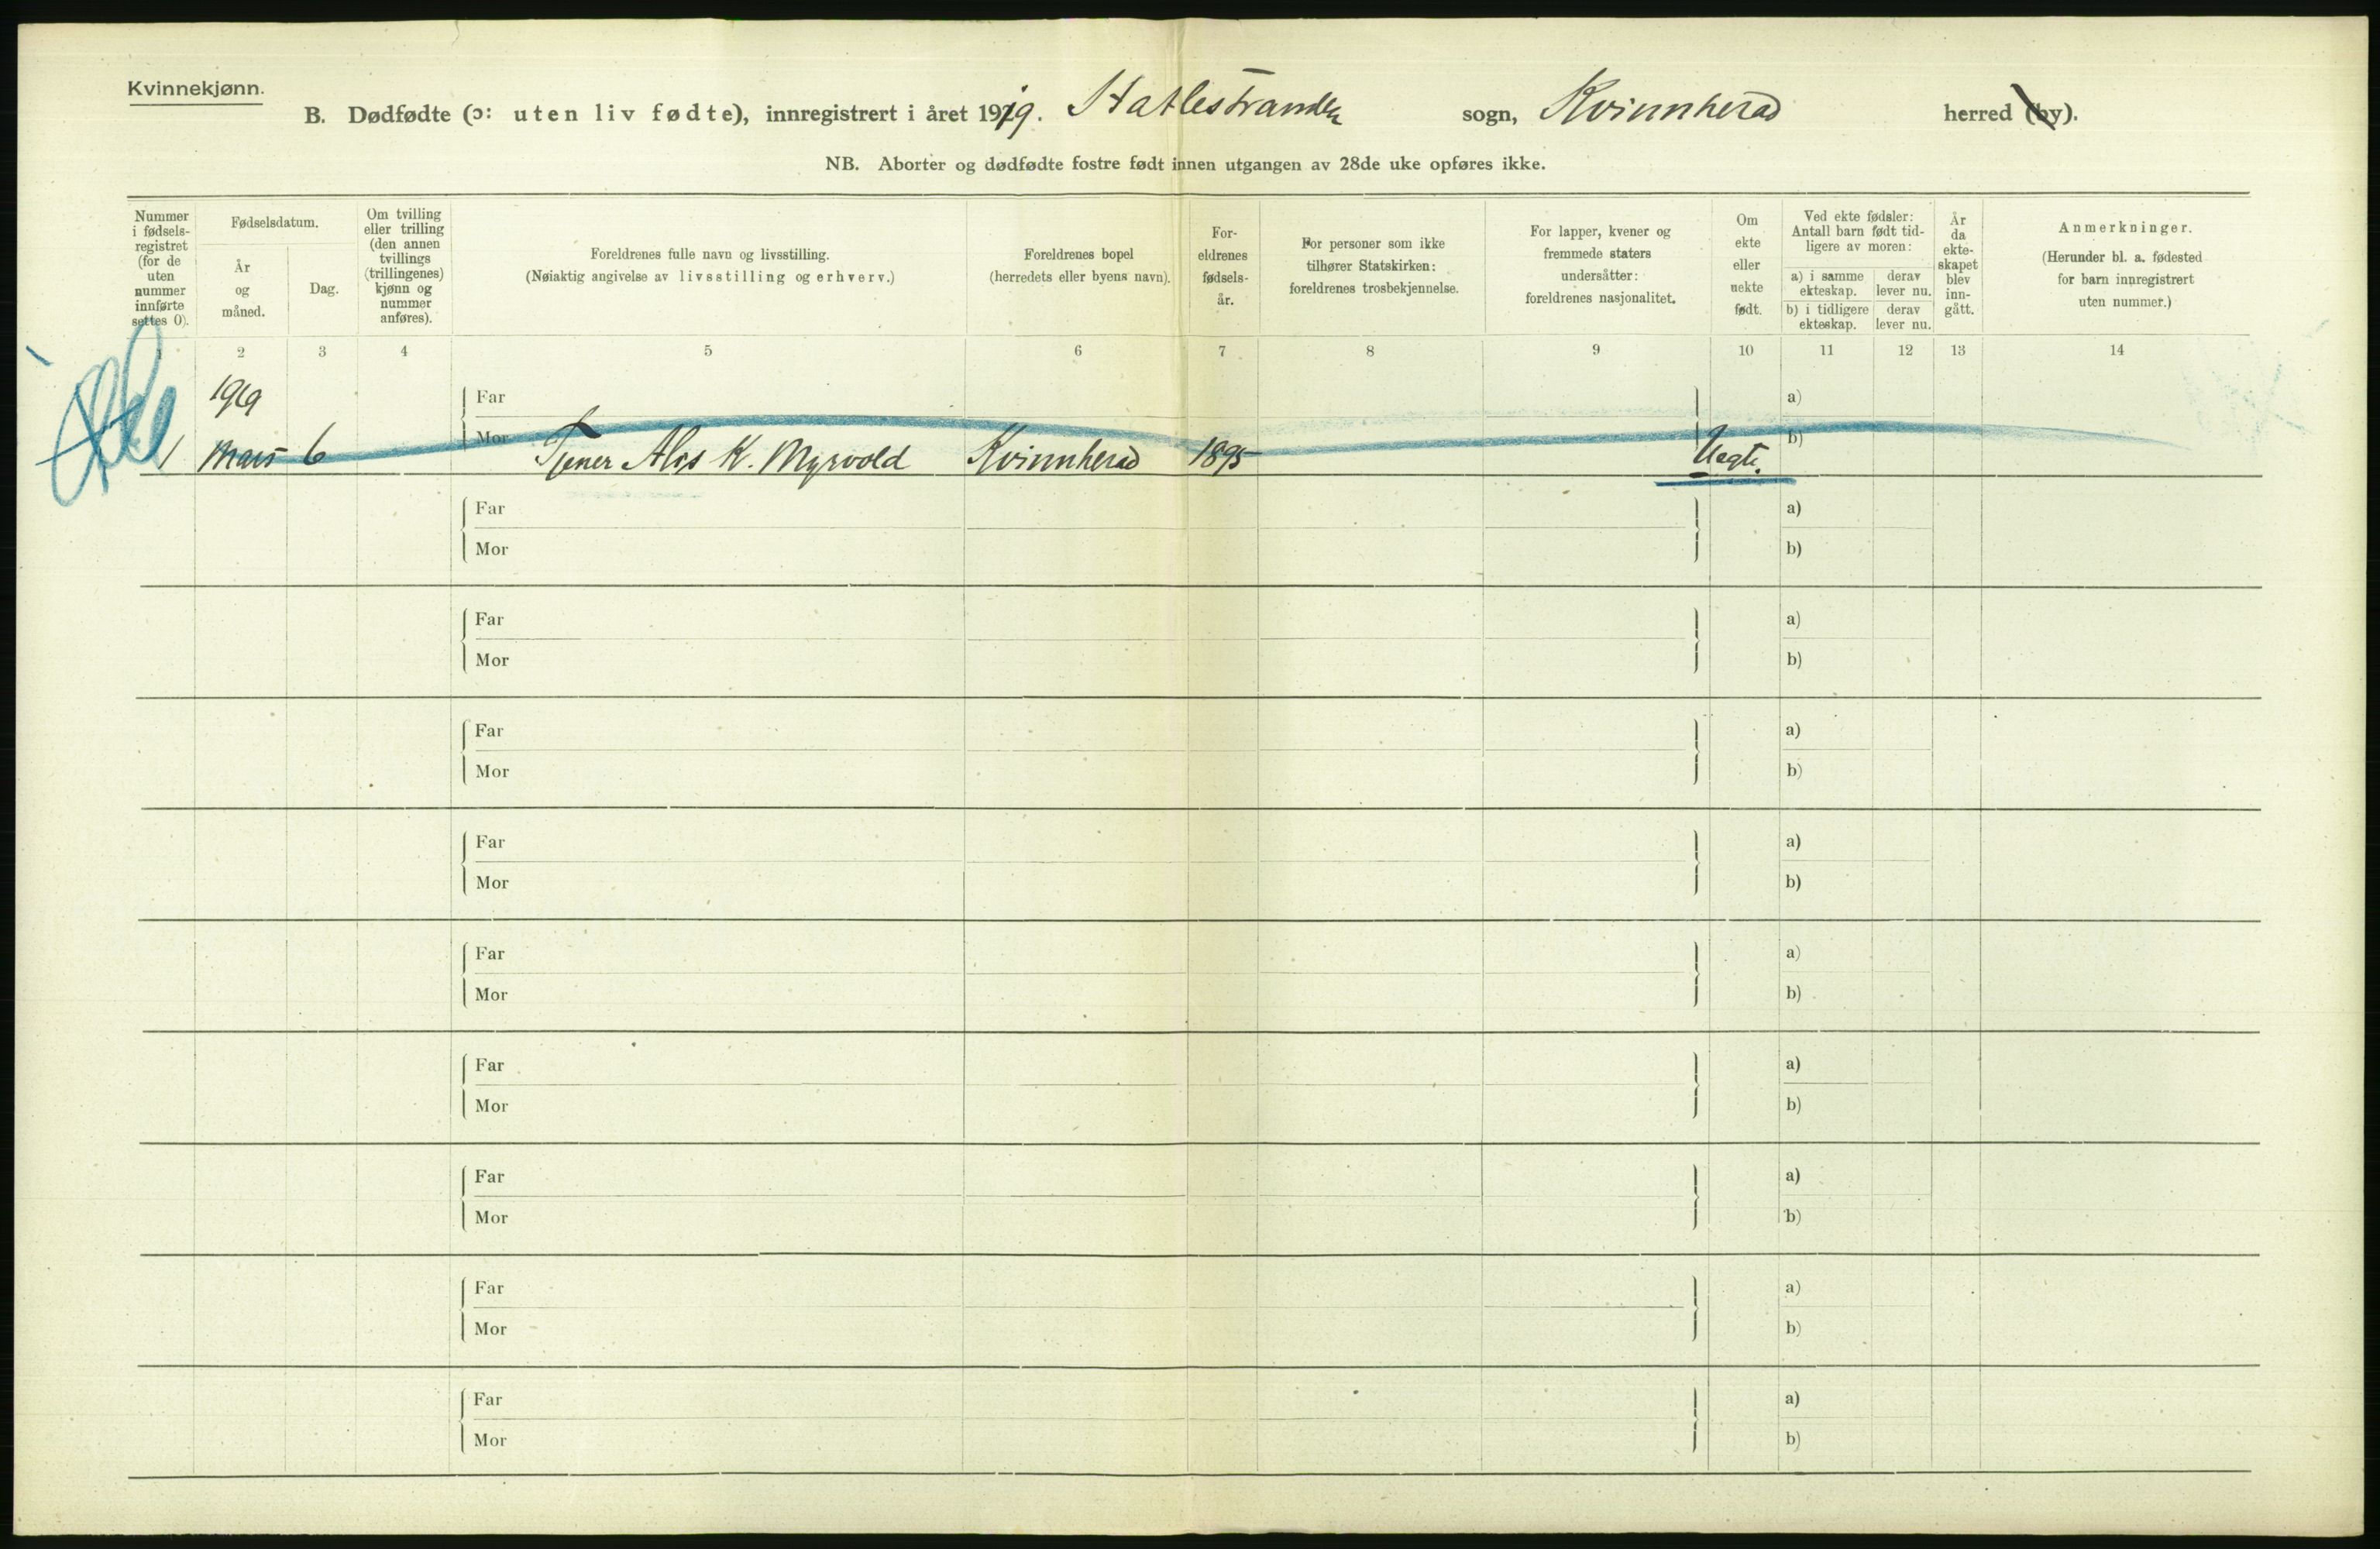 Kvinnekjønn.
B. Dødfødte (ɔ: uten liv fødte), innregistrert i året 1919. Hatlestranden sogn, Kvinnherad herred (by).
NB. Aborter og dødfødte fostre født innen utgangen av 28de uke opføres ikke.
Nummer i fødsels-registret (for de uten nummer innførte settes 0).
Fødselsdatum.
År og måned.
Dag.
Om tvilling eller trilling (den annen tvillings (trillingenes) kjønn og nummer anføres).
Foreldrenes fulle navn og livsstilling.
(Nøiaktig angivelse av livsstilling og erhverv.)
Foreldrenes bopel
(herredets eller byens navn).
For-eldrenes fødsels-år.
For personer som ikke tilhører Statskirken: foreldrenes trosbekjennelse.
For lapper, kvener og fremmede staters undersåtter: foreldrenes nasjonalitet.
Om ekte eller uekte født.
Ved ekte fødsler: Antall barn født tid-ligere av moren:
a) i samme ekteskap.
derav lever nu.
b) i tidligere ekteskap.
derav lever nu.
År da ekte-skapet blev inn-gått.
Anmerkninger.
(Herunder bl. a. fødested for barn innregistrert uten nummer.)
1 2 3 4 5 6 7 8 9 10 11 12 13 14
1919
Far a)
1 Mars 6 Mor Tjener K. Myrvold Kvinnherad 1895 Uegte. b)
Far a)
Mor b)
Far a)
Mor b)
Far a)
Mor b)
Far a)
Mor b)
Far a)
Mor b)
Far a)
Mor b)
Far a)
Mor b)
Far a)
Mor b)
Far a)
Mor b)